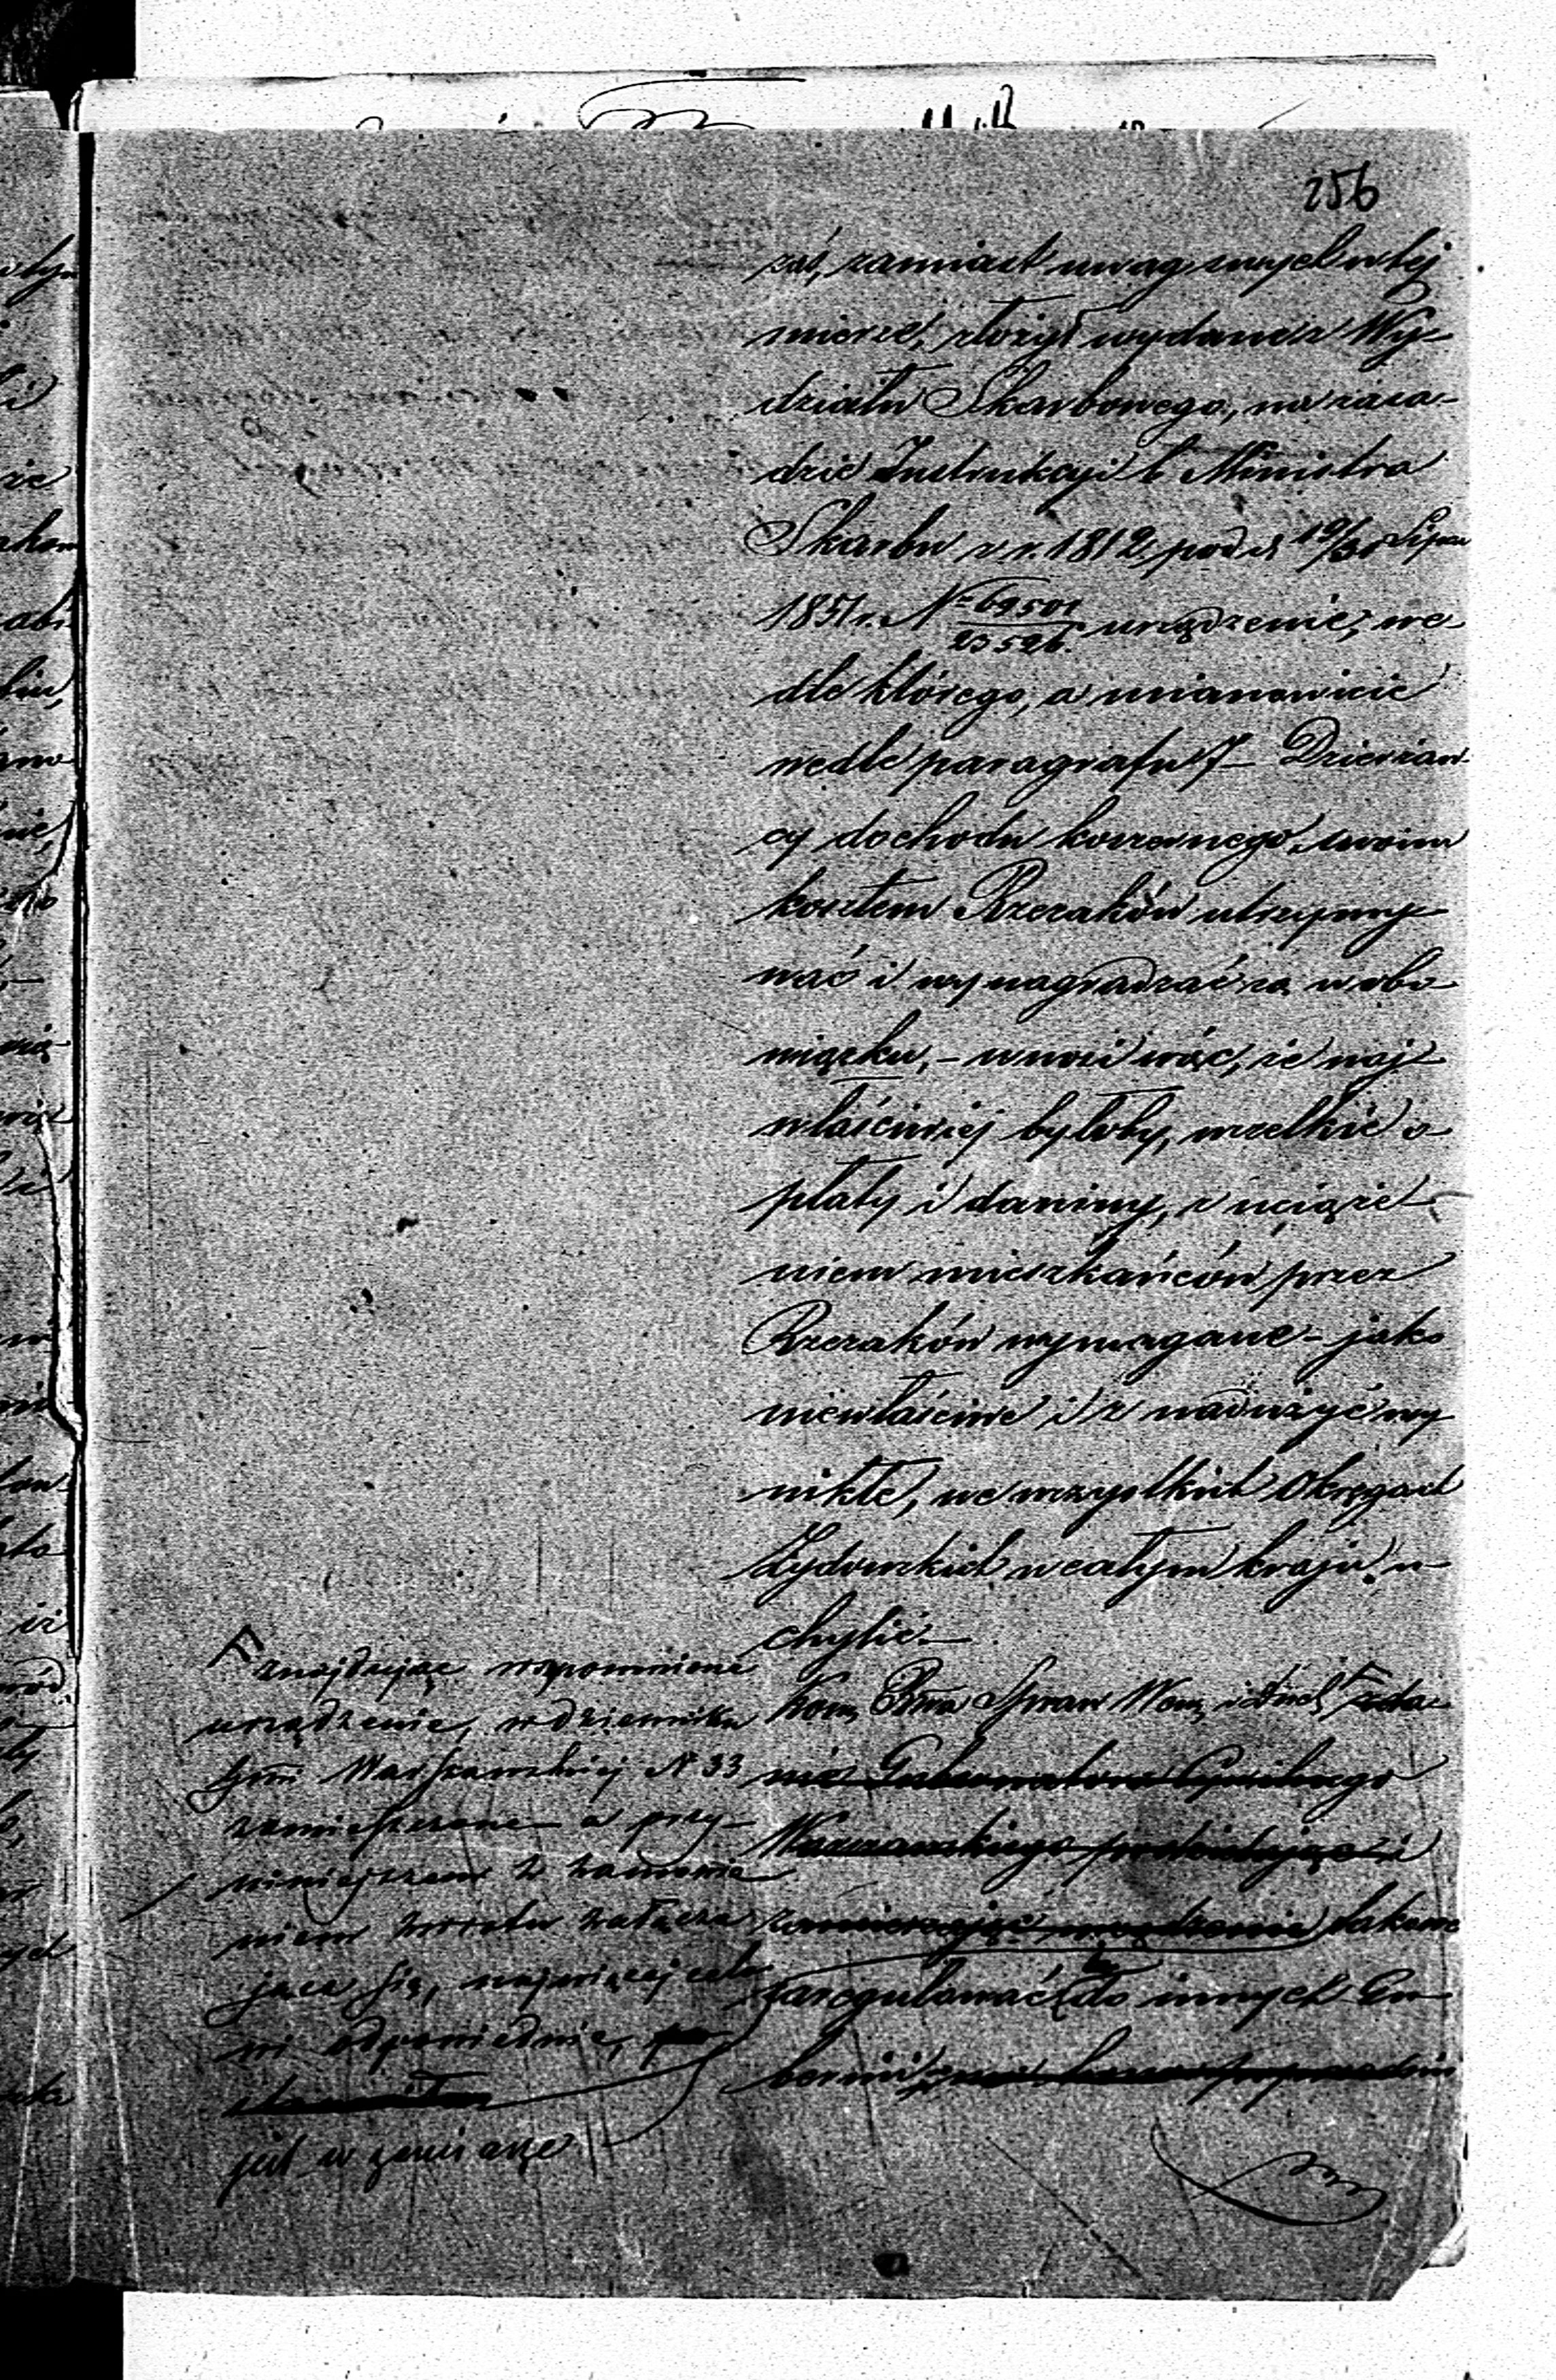 256
zaś, zamiast uwag swych w tej
mierze, złożył wydane z Wy-
działu Skarbowego, na zasa-
dzie Instrukcyi b. Ministra
Skarbu z r. 1812, pod d. 19/31 Lipca
1851 r. N° 69501/23526. urządzenie, we-
dle którego, a mianowicie
wedle paragrafu 7 Dzierżaw-
cy dochodu koszernego, swoim
kosztem Rzezaków utrzymy-
wać i wynagradzać są w obo-
wiązku, – wnosi więc, że naj-
właściwiej byłoby, wszelkie o-
płaty i daniny, z uciąże-
niem mieszkańców, przez
Rzezaków wymagane – jako
niewłaściwe i z nadużyć wy-
nikłe, we wszystkich Okręgach
Żydowskich w całym kraju u-
chylić. –
Kom. Rząa Spraw Wew. i Duch. zda-
nie Gubernatora Cywilnego
Warszawskiego podzielając i
zamierzając urządzenie takowe
zaregulować do innych Gu-
bernii
znajdując wspomnione
urządzenie, w dzienniku
Gnii Warszawskiej N° 33
zamieszczone a przy
niniejszem z zamówie
niem zwrotu załącza
jące się, najwięcej celo
wi odpowiednie,
jest w zamiarze